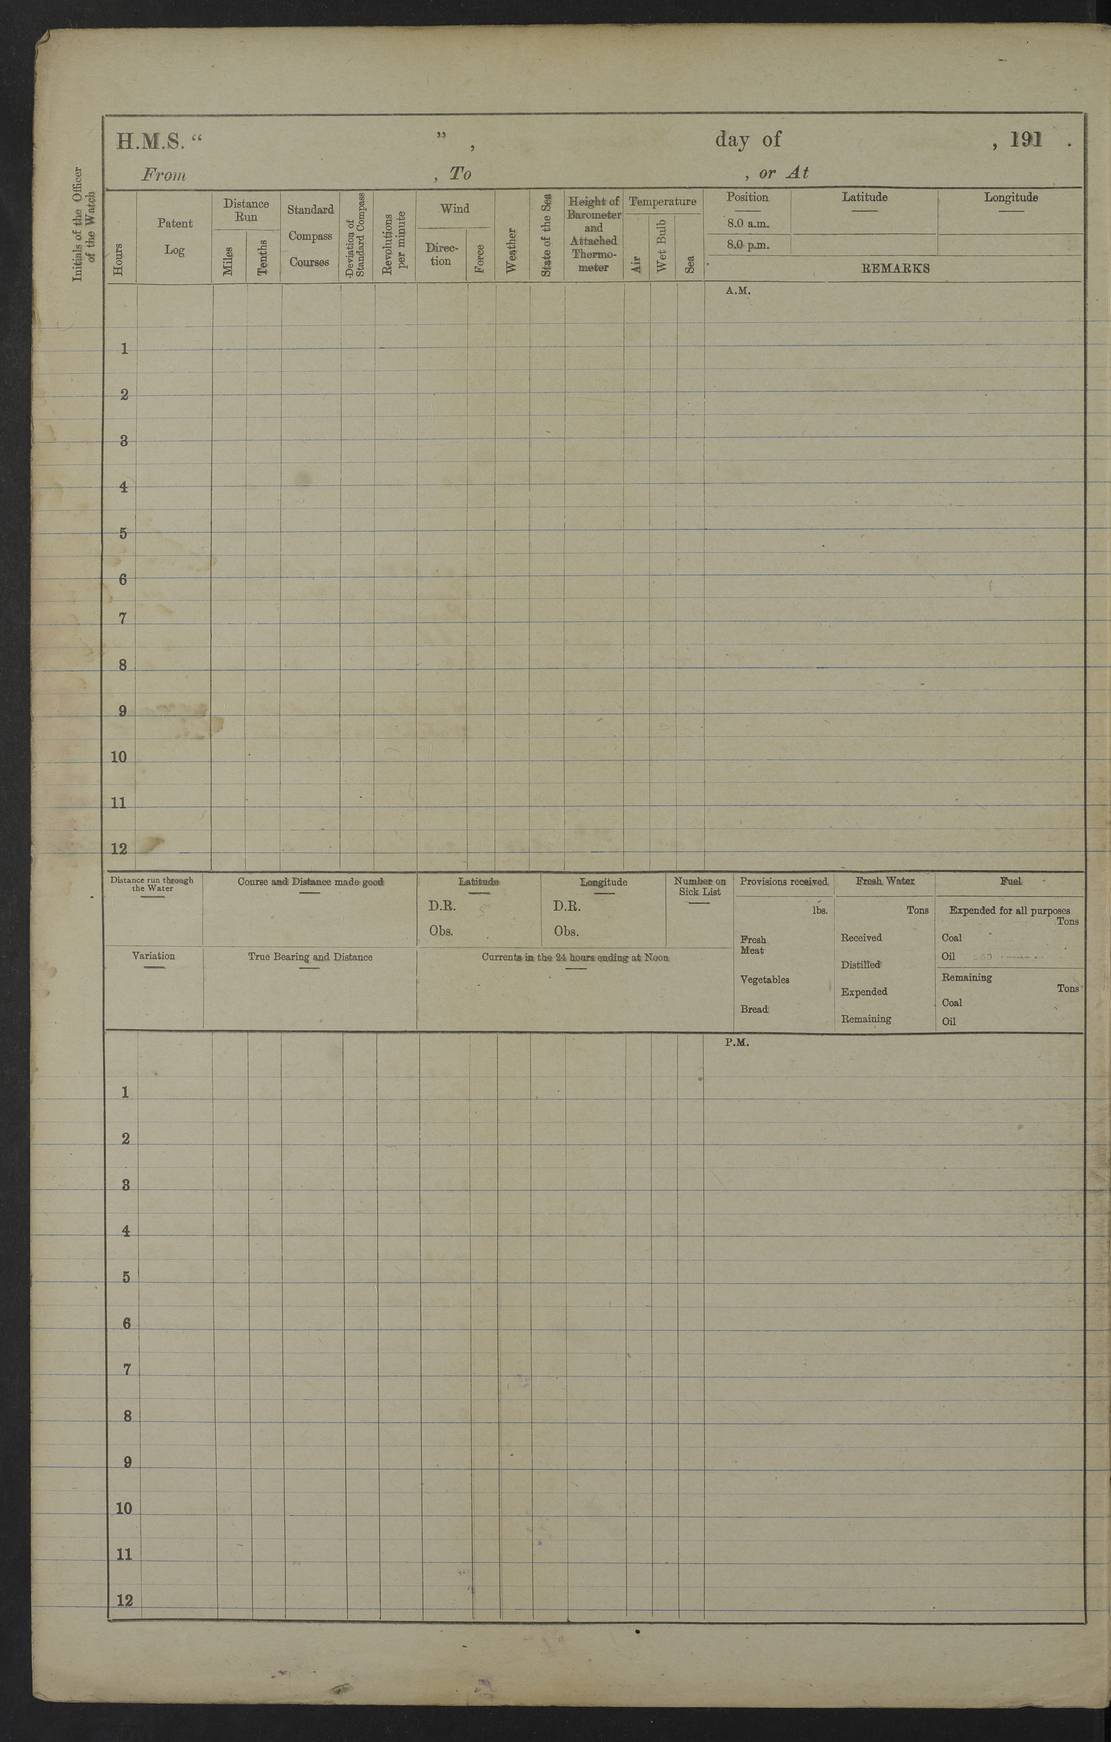 H.M.S. “ ” , day of , 191 .
From , To , or At
Initials of the Officer of the Watch
Hours
Patent Log
Distance Run
Miles
Tenths
Standard Compass Courses
Deviation of Standard Compass
Revolutions per minute
Wind
Direc-
tion
Force
Weather
State of the Sea
Height of
Barometer
and
Attached
Thermo-
meter
Temperature
Air
Wet Bulb
Sea
Position Latitude Longitude
8.0 a.m.
8.0 p.m.
REMARKS
A.M.
1
2
3
4
5
6
7
8
9
10
11
12
Distance run through
the Water
Course and Distance made good
Latitude
D.R.
Obs.
Longitude
D.R.
Obs.
Number on
Sick List
Variation
True Bearing and Distance
Currents in the 24 hours ending at Noon
Provisions received
lbs.
Fresh
Meat
Vegetables
Bread
Fresh Water
Tons
Received
Distilled
Expended
Remaining
Fuel
Expended for all purposes
Tons
Coal
Oil
Remaining
Tons
Coal
Oil
P.M.
1
2
3
4
5
6
7
8
9
10
11
12